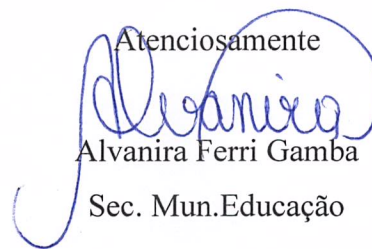 Atenciosamente
Alvanira
Alvanira Ferri Gamba
Sec. Mun.Educação